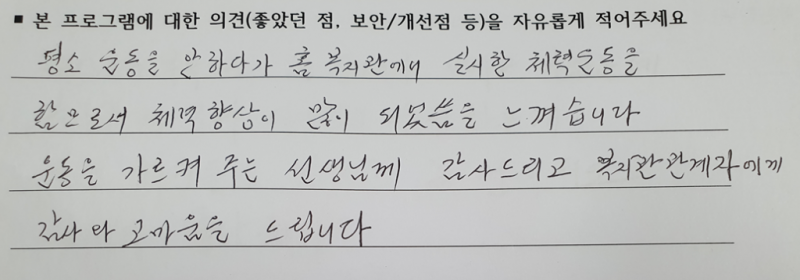 ■ 본 프로그램에 대한 의견(좋았던 점, 보안/개선점 등)을 자유롭게 적어주세요
평소 운동을 안하다가 홈 복지관에서 실시한 체력운동을
함으로서 체력향상이 많이 되었씀을 느껴습니다
운동을 가르켜 주는 선생님께 감사드리고 복지관관계자에게
감사와 고마움을 드립니다